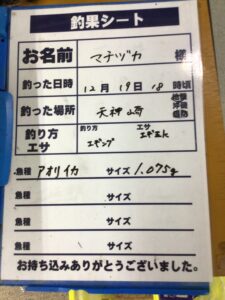 釣果シート
お名前 マチヅカ 様
釣った日時 12月19日18時頃
釣った場所 天神崎
釣り方 エサ
釣り方 エギング エサ エギ王K
魚種 アオリイカ サイズ 1.075g
魚種 サイズ
魚種 サイズ
魚種 サイズ
お持ち込みありがとうございました。